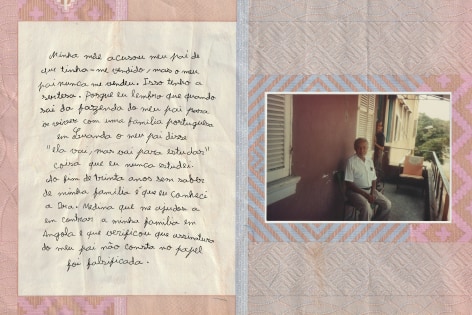 Minha mãe acusou meu pai de
que tinha-me vendido, mas o meu
pai nunca me vendeu. Isso tenho a
certesa. Porque eu lembro que quando
sai da fazenda do meu pai para
o viver com uma familia portuguesa
em Luanda o meu pai dissa
"ela vai, mas vai para estudar"
coisa que eu nunca estudei.
Ao fim de trinta anos sem saber
de minha familia é que eu conheci
a Dra. Medina que me ajudou a
em contrar a minha familia em
Angola e que verificou que assinatura
do meu pai não consta no papel
foi falsificada.